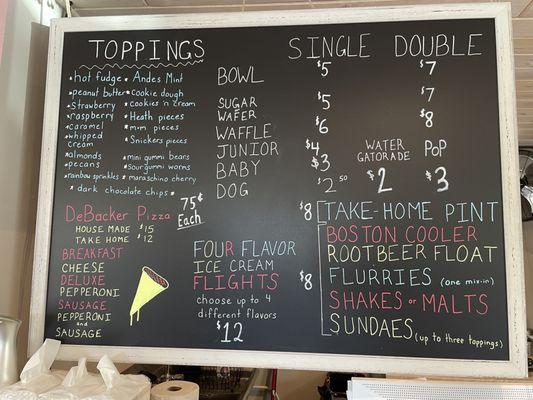 TOPPINGS
*hot fudge *Andes Mint
*peanut butter *cookie dough
*strawberry *cookies 'n cream
*raspberry *Heath pieces
*caramel *m&m pieces
*whipped cream *Snickers pieces
*almonds *mini gummi bears
*pecans *sour gummi worms
*rainbow sprinkles *maraschino cherry
*dark chocolate chips*
75¢
Each
SINGLE DOUBLE
BOWL $5 $7
SUGAR WAFER $5 $7
WAFFLE $6 $8
JUNIOR $4
BABY $3
DOG $2.50
WATER
GATORADE
$2
POP
$3
DeBacker Pizza
HOUSE MADE $15
TAKE HOME $12
BREAKFAST
CHEESE
DELUXE
PEPPERONI
SAUSAGE
PEPPERONI
and
SAUSAGE
FOUR FLAVOR
ICE CREAM
FLIGHTS
choose up to 4
different flavors
$12
$8 TAKE-HOME PINT
$8
BOSTON COOLER
ROOTBEER FLOAT
FLURRIES (one mix-in)
SHAKES or MALTS
SUNDAES (up to three toppings)